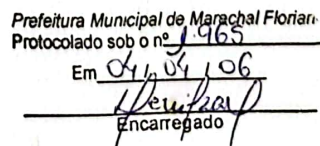 Prefeitura Municipal de Marechal Florian
Protocolado sob o nº 1.965
Em 04/04/06
Encarregado